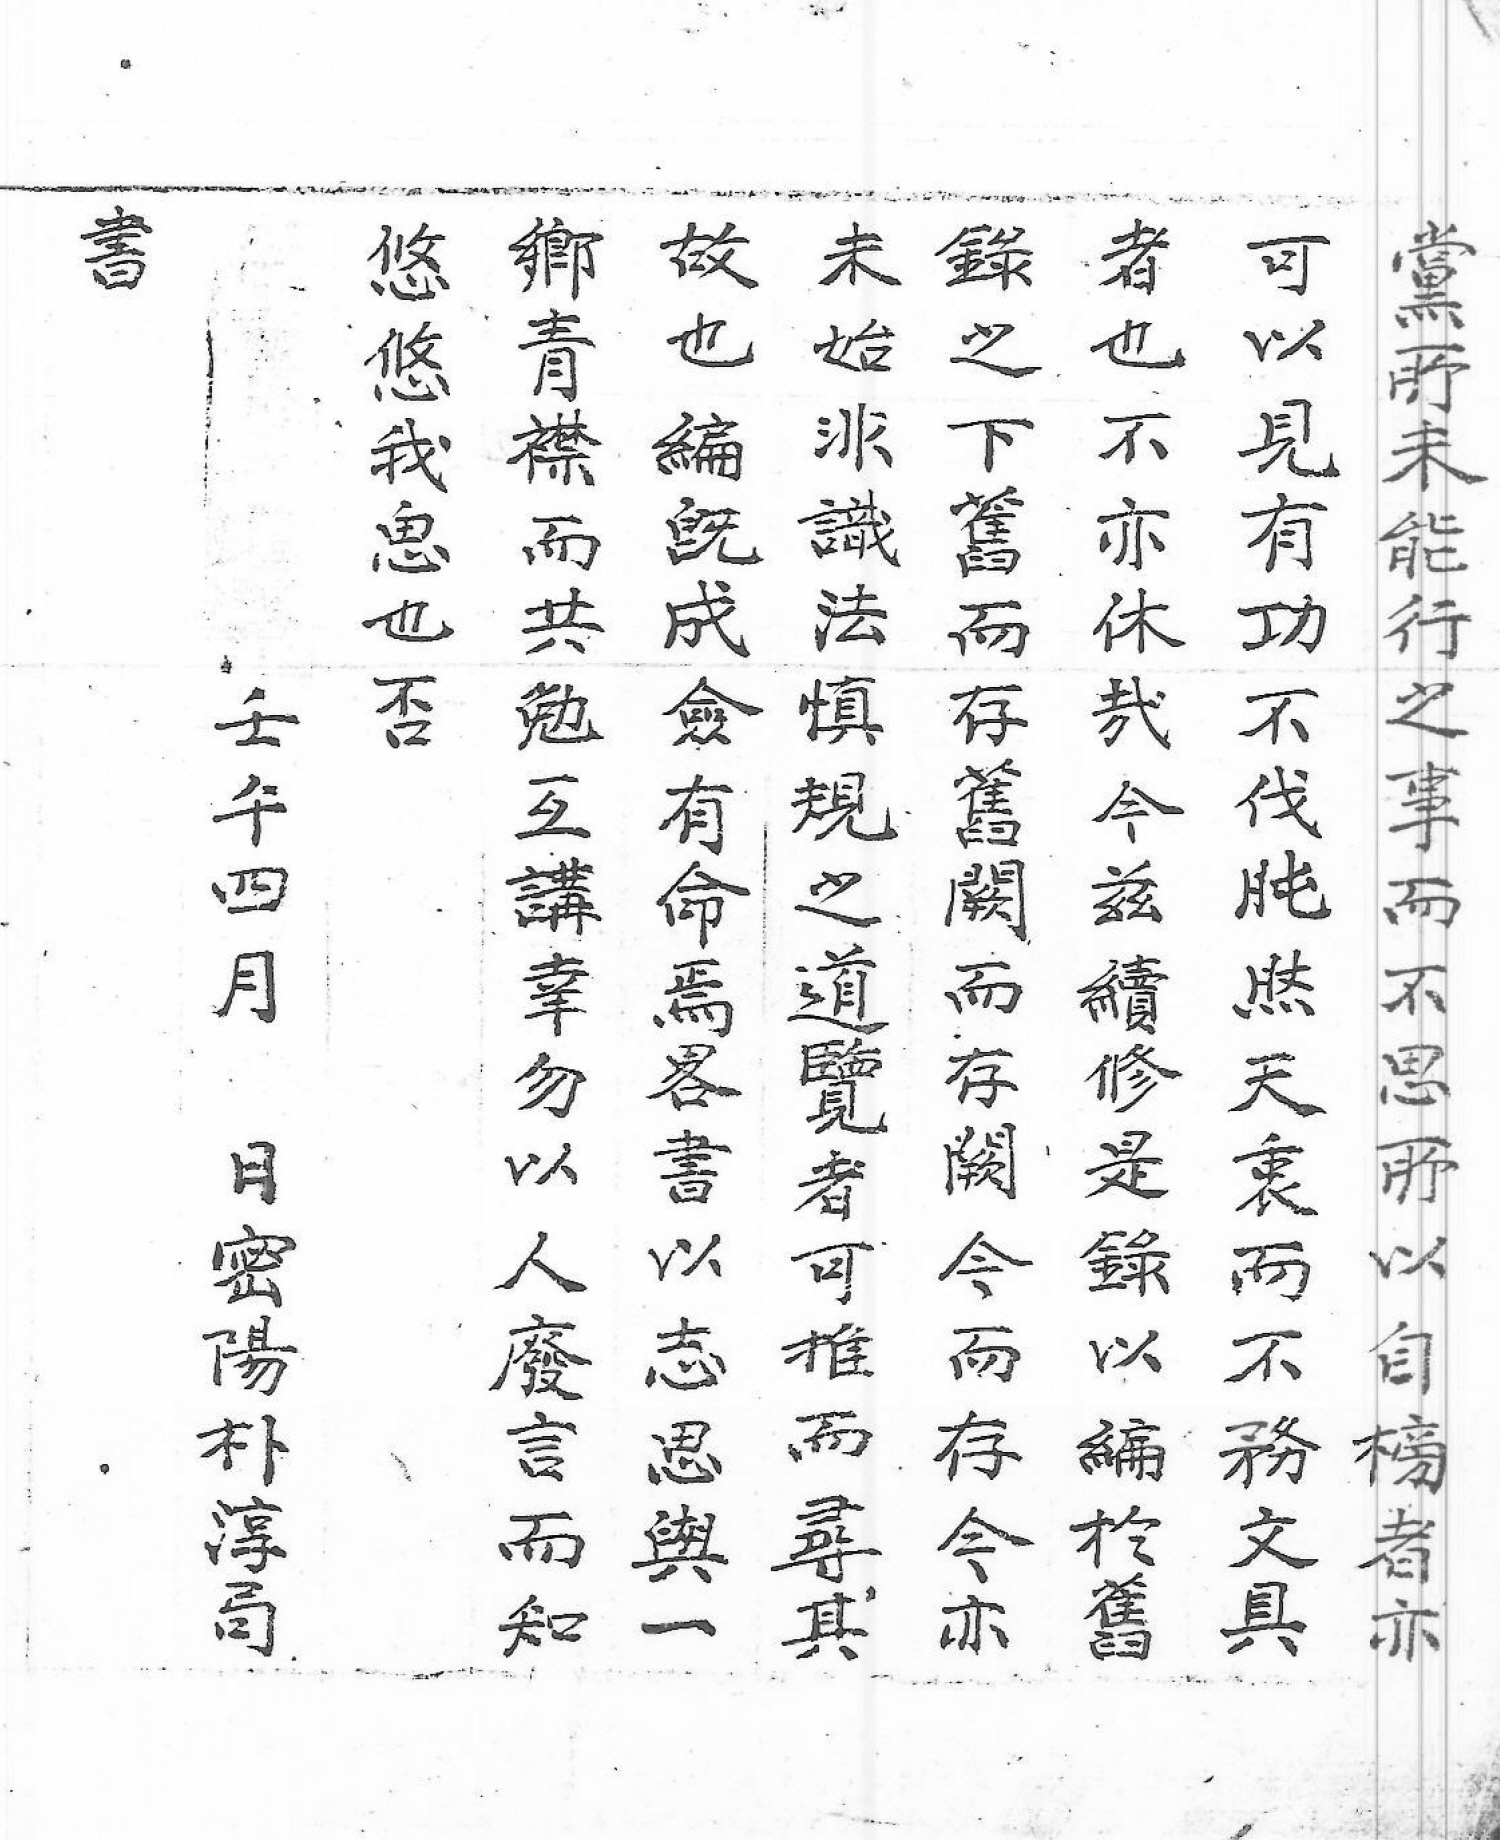 黨所未能行之事而不思所以自榜者亦
可以見有功不伐肫然天衷而不務文具
者也不亦休哉今茲續修是錄以編於舊
錄之下舊而存舊闕而存闕今而存今亦
未始非識法慎規之道覽者可推而尋其
故也編旣成僉有命焉畧書以志思與一
鄉青襟而共勉互講幸勿以人廢言而知
悠悠我思也否
壬午四月 日密陽朴淳局
書